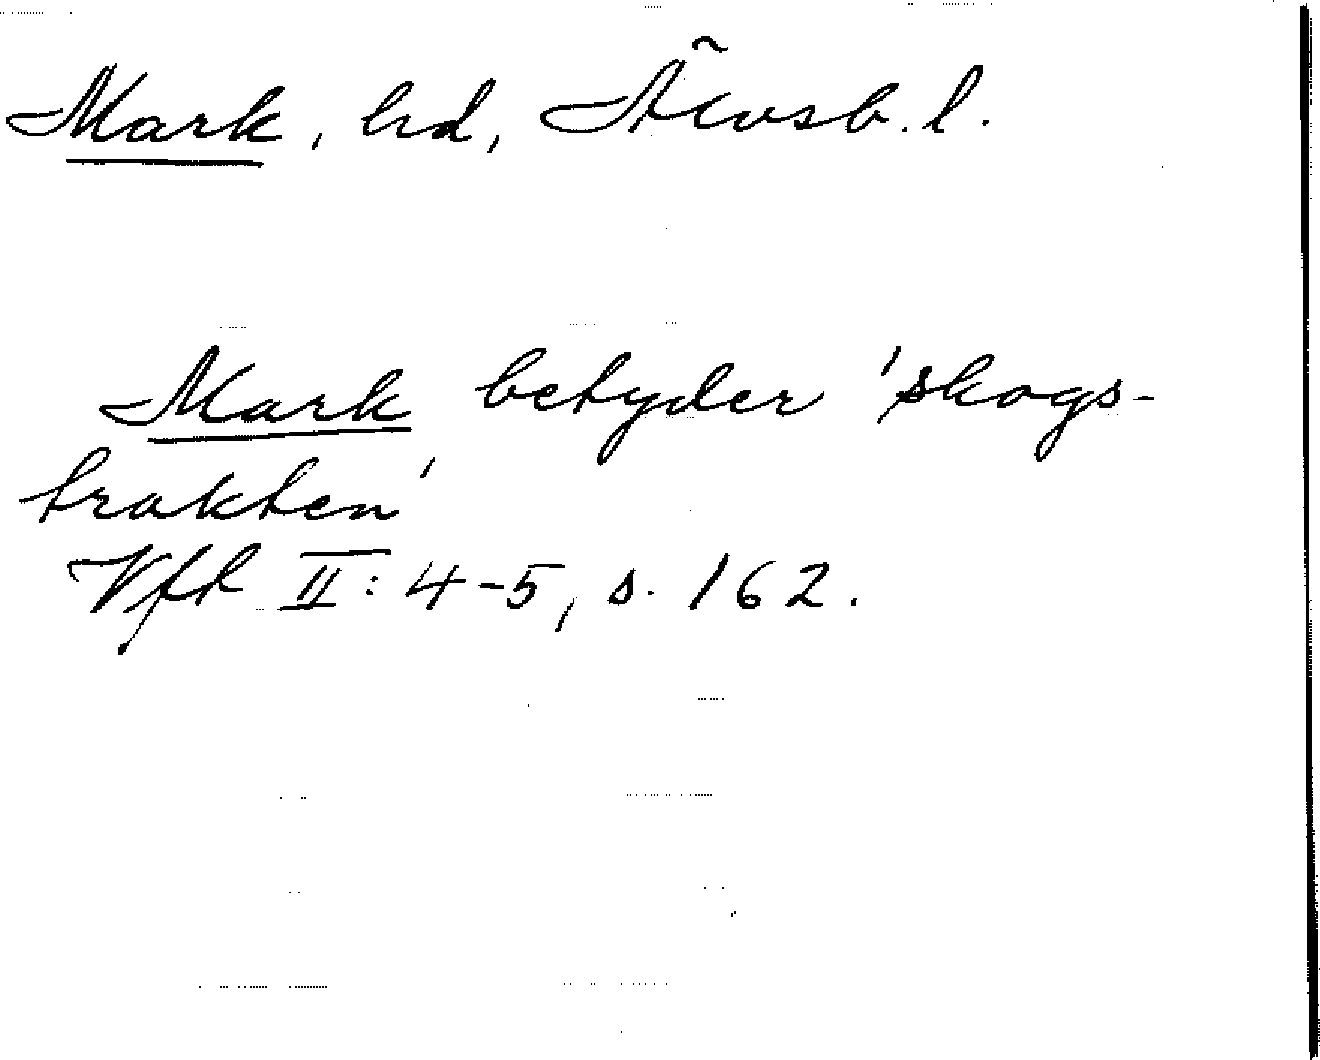 Mark, hd, Älvsb. l.
Mark betyder 'skogs-
trakten'
Vfr II: 4-5, s. 162.